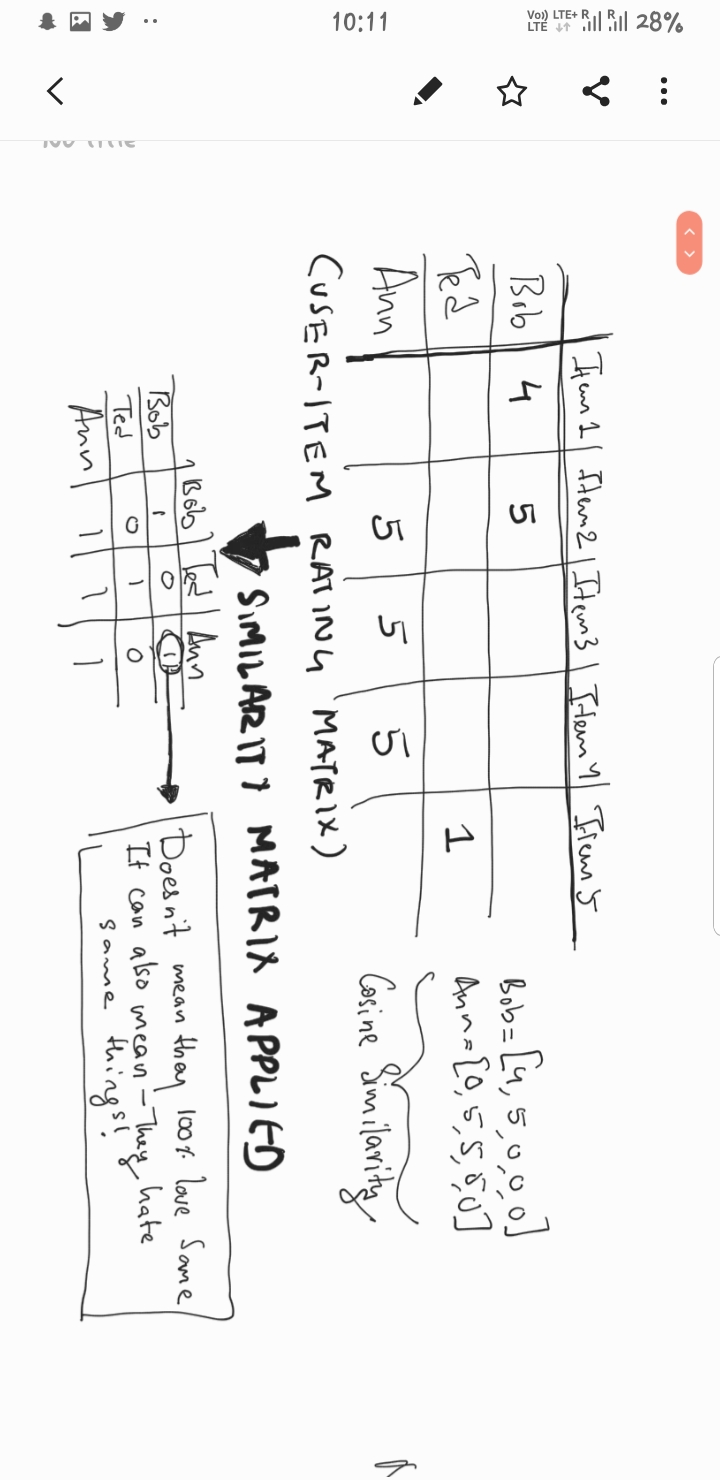 10:11
Vo)) LTE+ R R 28%
LTE
Item 1 Item 2 Item 3 Item 4 Item 5
Bob 4 5
Ted 1
Ann 5 5 5
(USER-ITEM RATING MATRIX)
Bob = [4, 5, 0, 0, 0]
Ann = [0, 5, 5, 5, 0]
Cosine Similarity
SIMILARITY MATRIX APPLIED
Bob Ted Ann
Bob 1 0 1
Ted 0 1 0
Ann 1 1 1
Doesn't mean they 100% love same
It can also mean - They hate
same things!